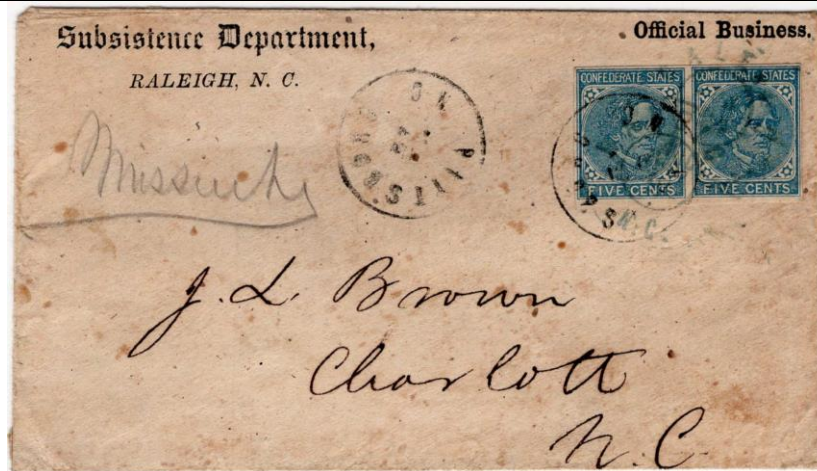 Subsistence Department,
RALEIGH, N. C.
Official Business.
CONFEDERATE STATES
FIVE CENTS
CONFEDERATE STATES
FIVE CENTS
PITTSBORO
N.C.
J. L. Brown
Charlott
N. C.